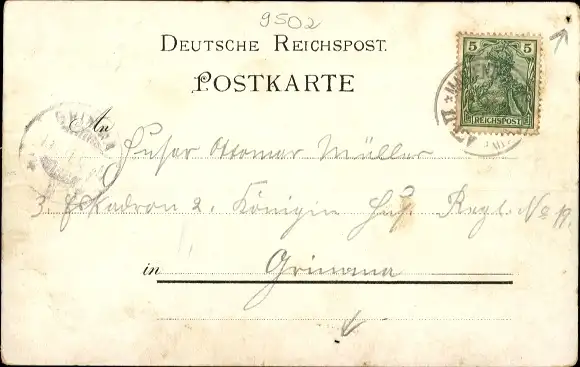 9502
DEUTSCHE REICHSPOST.
POSTKARTE
5 5
REICHSPOST
An
Husar Ottomar Müller
3. Eskadron 2. Königin Hus. Regt. No 19.
in Grimma